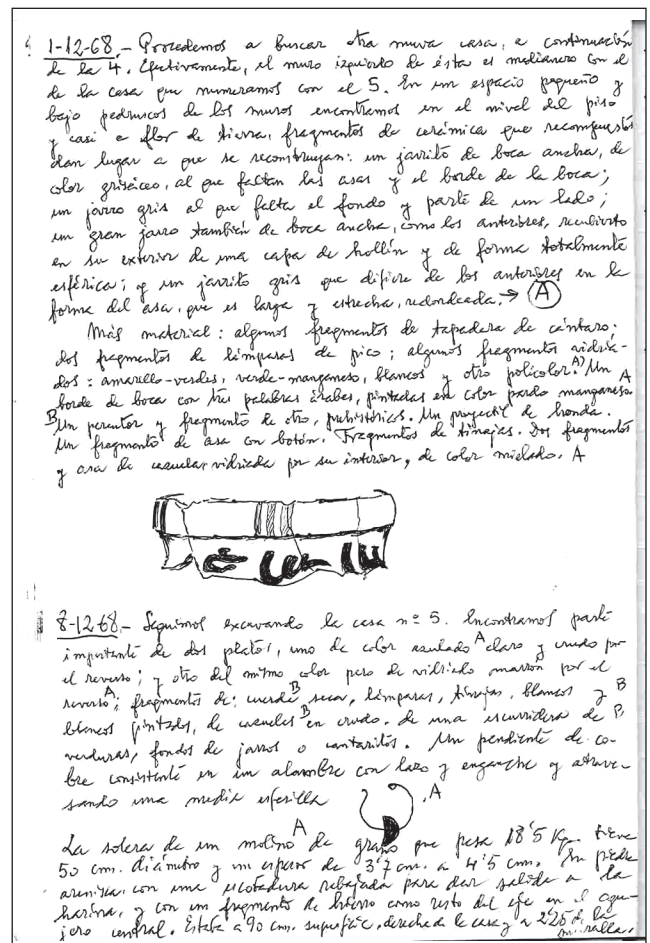 1-12-68.- Procedemos a buscar otra nueva casa, a continuación
de la 4. Efectivamente, el muro izquierdo de ésta es medianero con el
de la casa que numeramos con el 5. En un espacio pequeño y
bajo pedruscos de los muros encontramos en el nivel del piso
y casi a flor de tierra, fragmentos de cerámica que recompuestos
dan lugar a que se reconstruyan: un jarrito de boca ancha, de
color grisáceo, al que faltan las asas y el borde de la boca;
un jarro gris al que falta el fondo y parte de un lado;
un gran jarro también de boca ancha, como los anteriores, recubierto
en su exterior de una capa de hollín y de forma totalmente
esférica; y un jarrito gris que difiere de los anteriores en la
forma del asa, que es larga y estrecha, redondeada. → A
Más material: algunos fragmentos de tapadera de cántaro;
dos fragmentos de lámparas de pico; algunos fragmentos vidria-
dos: amarillo-verdes, verde-manganeso, blancos y otro policolor. A) Un
borde de boca con tres palabras árabes, pintadas en color pardo manganeso. A
B Un percutor y fragmento de otro, prehistóricos. Un proyectil de honda.
Un fragmento de asa con botón. Fragmentos de tinajas. Dos fragmentos
y asa de cazuela vidriada por su interior, de color mielado. A
8-12-68.- Seguimos excavando la casa nº 5. Encontramos parte
importante de dos platos, uno de color azulado A claro y crudo por
el reverso; y otro del mismo color pero de vidriado marrón por el
reverso A; fragmentos de: cuerda B seca, lámparas, tinajas, blancos y B
blancos pintados, de cazuelas B en crudo, de una escurridera de B
verduras, fondos de jarros o cantaritos. Un pendiente de co-
bre consistente en un alambre con lazo y enganche y atrave-
sando una media esferilla . A
La solera de un molino A de grano que pesa 18'5 Kg. tiene
50 cm. diámetro y un espesor de 3'7 cm. a 4'5 cm. En piedra
arenisca, con una escotadura rebajada para dar salida a la
harina, y con un fragmento de hierro como resto del eje en el agu-
jero central. Estaba a 90 cm. superficie, derecha de la casa y a 2'25 de la
muralla.